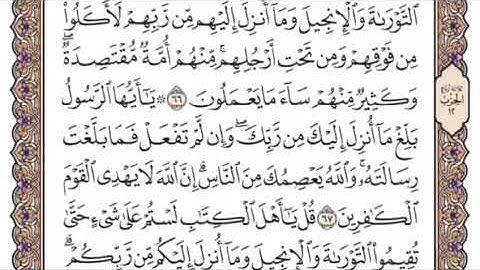 ٱلتَّوۡرَىٰةَ وَٱلۡإِنجِيلَ وَمَآ أُنزِلَ إِلَيۡهِم مِّن رَّبِّهِمۡ لَأَكَلُواْ
مِن فَوۡقِهِمۡ وَمِن تَحۡتِ أَرۡجُلِهِمۚ مِّنۡهُمۡ أُمَّةٞ مُّقۡتَصِدَةٞۖ
وَكَثِيرٞ مِّنۡهُمۡ سَآءَ مَا يَعۡمَلُونَ ٦٦ ۞ يَٰٓأَيُّهَا ٱلرَّسُولُ
بَلِّغۡ مَآ أُنزِلَ إِلَيۡكَ مِن رَّبِّكَۖ وَإِن لَّمۡ تَفۡعَلۡ فَمَا بَلَّغۡتَ
رِسَالَتَهُۥۚ وَٱللَّهُ يَعۡصِمُكَ مِنَ ٱلنَّاسِۗ إِنَّ ٱللَّهَ لَا يَهۡدِي ٱلۡقَوۡمَ
ٱلۡكَٰفِرِينَ ٦٧ قُلۡ يَٰٓأَهۡلَ ٱلۡكِتَٰبِ لَسۡتُمۡ عَلَىٰ شَيۡءٍ حَتَّىٰ
تُقِيمُواْ ٱلتَّوۡرَىٰةَ وَٱلۡإِنجِيلَ وَمَآ أُنزِلَ إِلَيۡكُم مِّن رَّبِّكُمۡۗ
الحزب
١٢